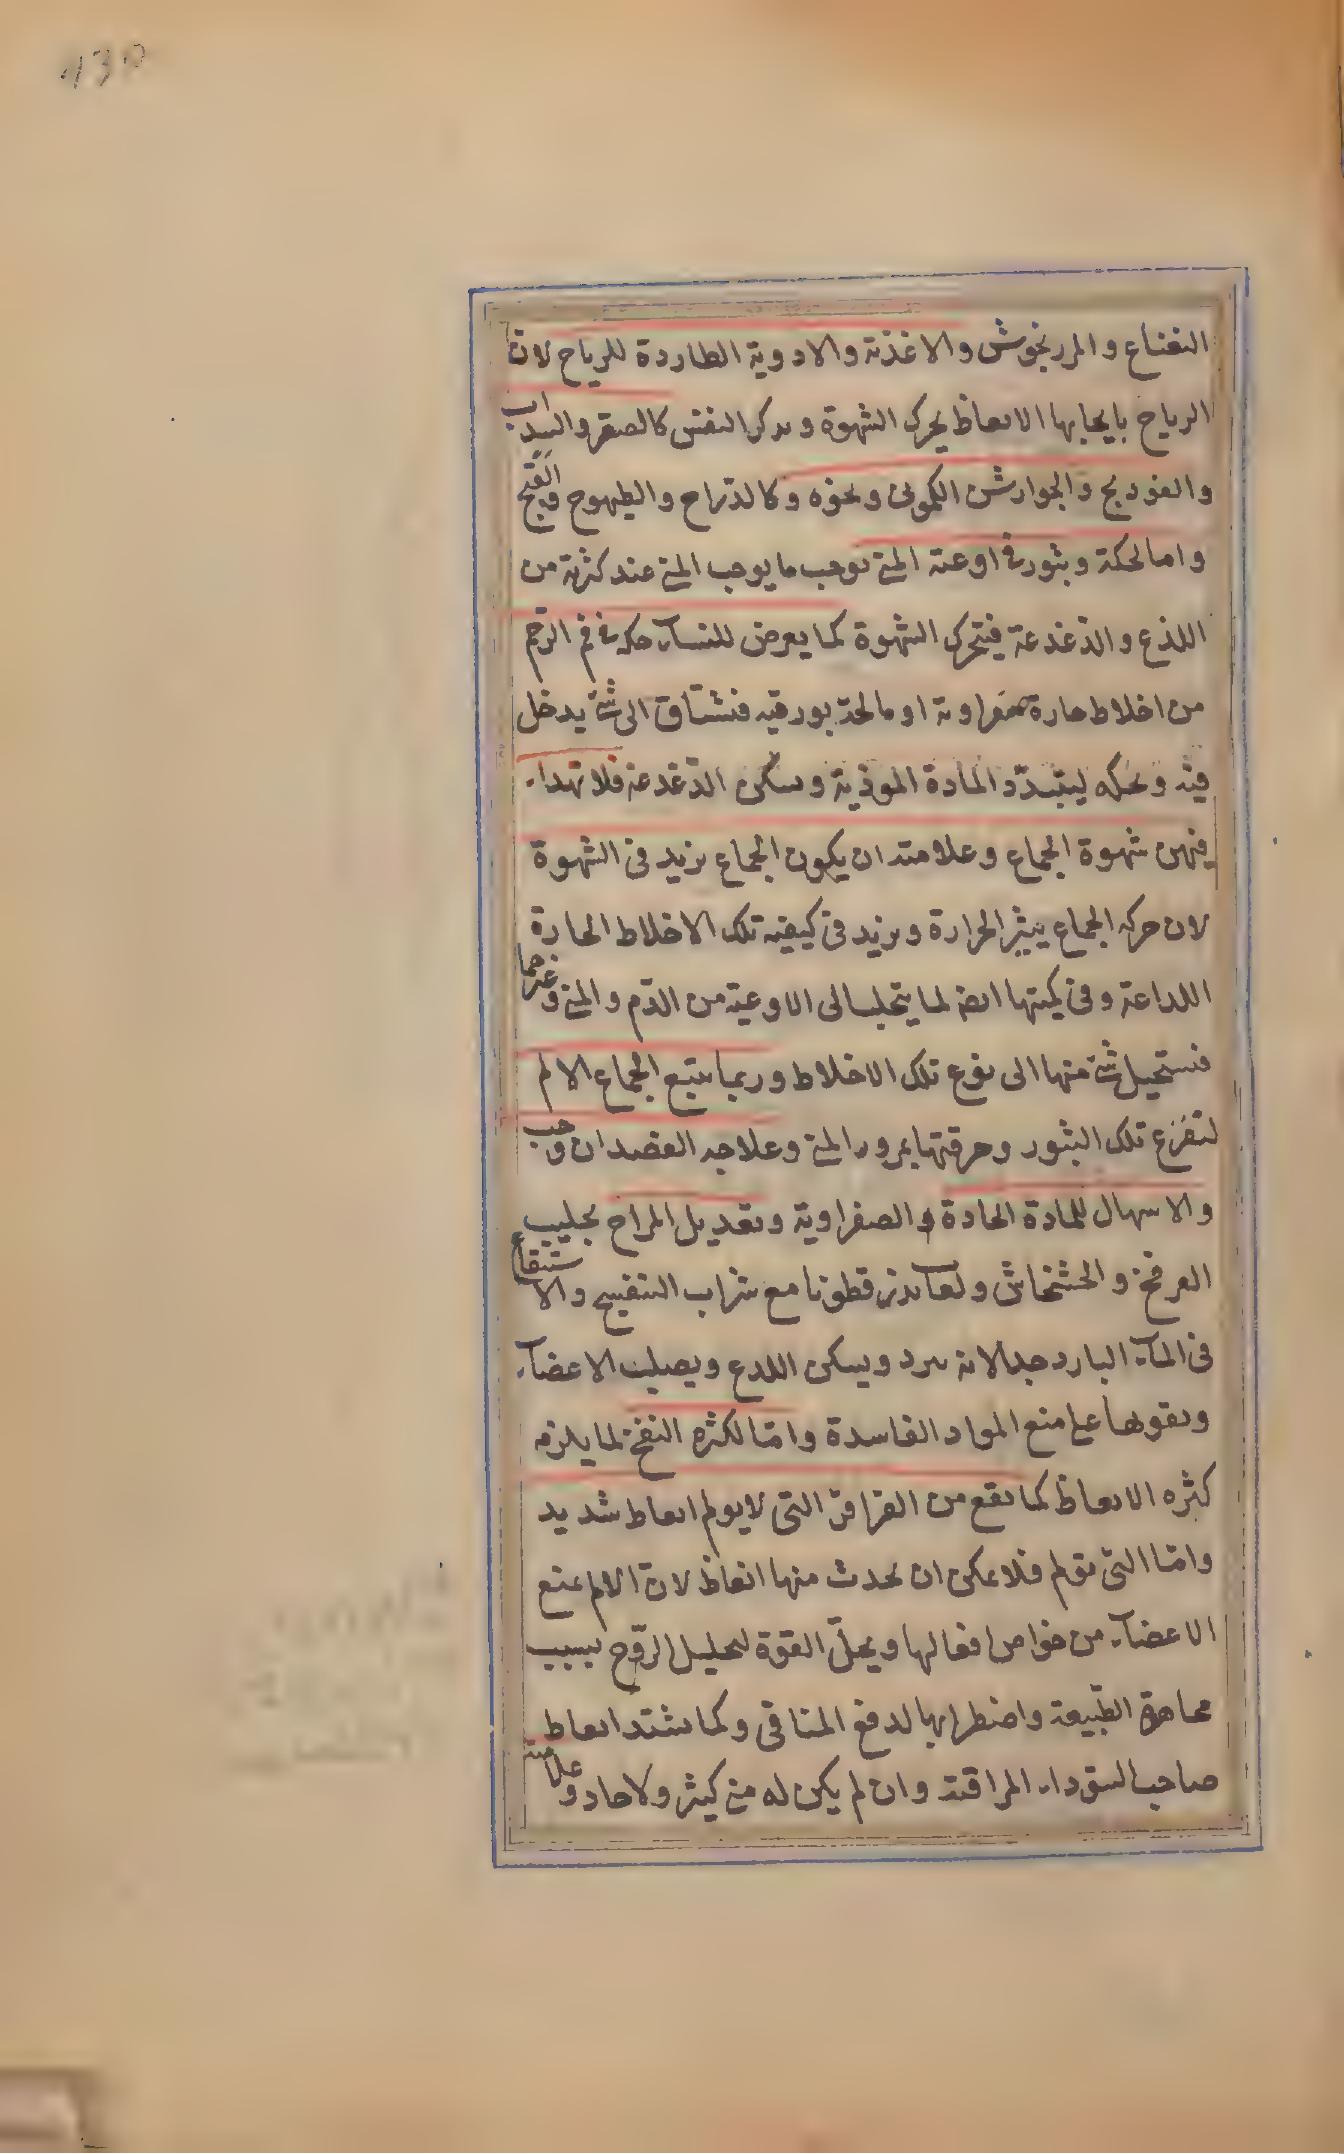 النعناع والمرزنجوش والاغذية والادوية الطاردة للرياح لان
الرياح بايجابها الانعاظ يحرك الشهوة ويذكر النفس كالصعتر والسداب
والفودنج والجوارشن الكمونى ونحوه وكالدراج والطيهوج والقبج
واما لحكة وبثور فى اوعية المنى توجب ما يوجب المنى عند كثرته من
اللذع والدغدغة فيتحرك الشهوة كما يعرض للنساء حكة فى فم الرحم
من اخلاط حارة صفراوية او مالحة بورقية فتشتاق الى شئ يدخل
فيه ويحكه ليتبدد المادة الموذية ويسكن الدغدغة فلا تهداء
فيهن شهوة الجماع وعلامته ان يكون الجماع يزيد فى الشهوة
لان حركة الجماع يثير الحرارة ويزيد فى كيفية تلك الاخلاط الحارة
اللداعة وفى كميتها ايضا لما يتحلب الى الاوعية من الدم والمنى وغيرهما
فتستحيل شئ منها الى نوع تلك الاخلاط وربما يتبع الجماع الالم
لتقرع تلك البثور وحرقتها بمرور المنى وعلاجه الفصد ان وجب
والاسهال للمادة الحادة والصفراوية وتعديل المزاج بحليب
العرفج والخشخاش ولعاب بزر قطونا مع شراب البنفسج والاستنقاع
فى الماء البارد جدا لانه يبرد ويسكن اللدع ويصلب الاعضاء
ويقويها على منع المواد الفاسدة واما لكثرة النفخ لما يلزمه
كثره الانعاظ كما يقع من القراقر التى لا يولم انعاظ شديد
واما التى تولم فلا يمكن ان يحدث منها انعاظ لان الالم يمنع
الاعضاء من خواص افعالها ويحل القوة لتحليل الروح لسبب
مجاهدة الطبيعة واضطرابها لدفع المنافى وكما يشتد انعاظ
صاحب السوداء المراقية وان لم يكن له منى كثير ولا حاد وعلامته